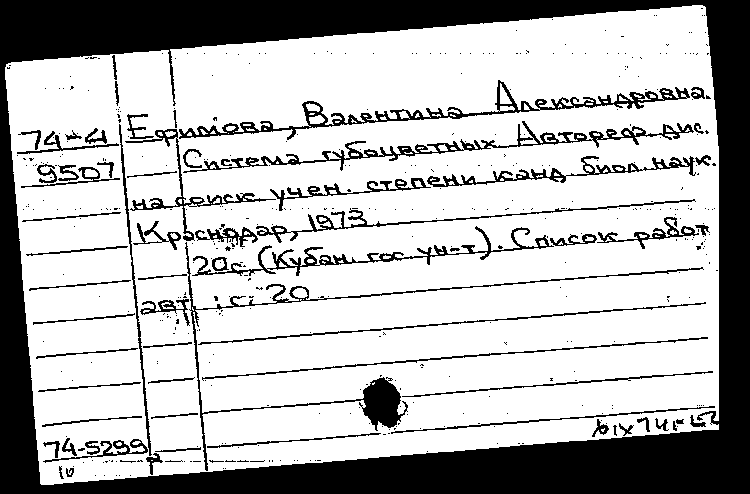 Ефимова, Валентина Александровна.
74-4
9507
Система губоцветных Автореф. дис.
на соиск учен. степени канд биол. наук.
Краснодар, 1973.
20с. (Кубан. гос ун-т). Список работ
авт.: с. 20
74-5299
10